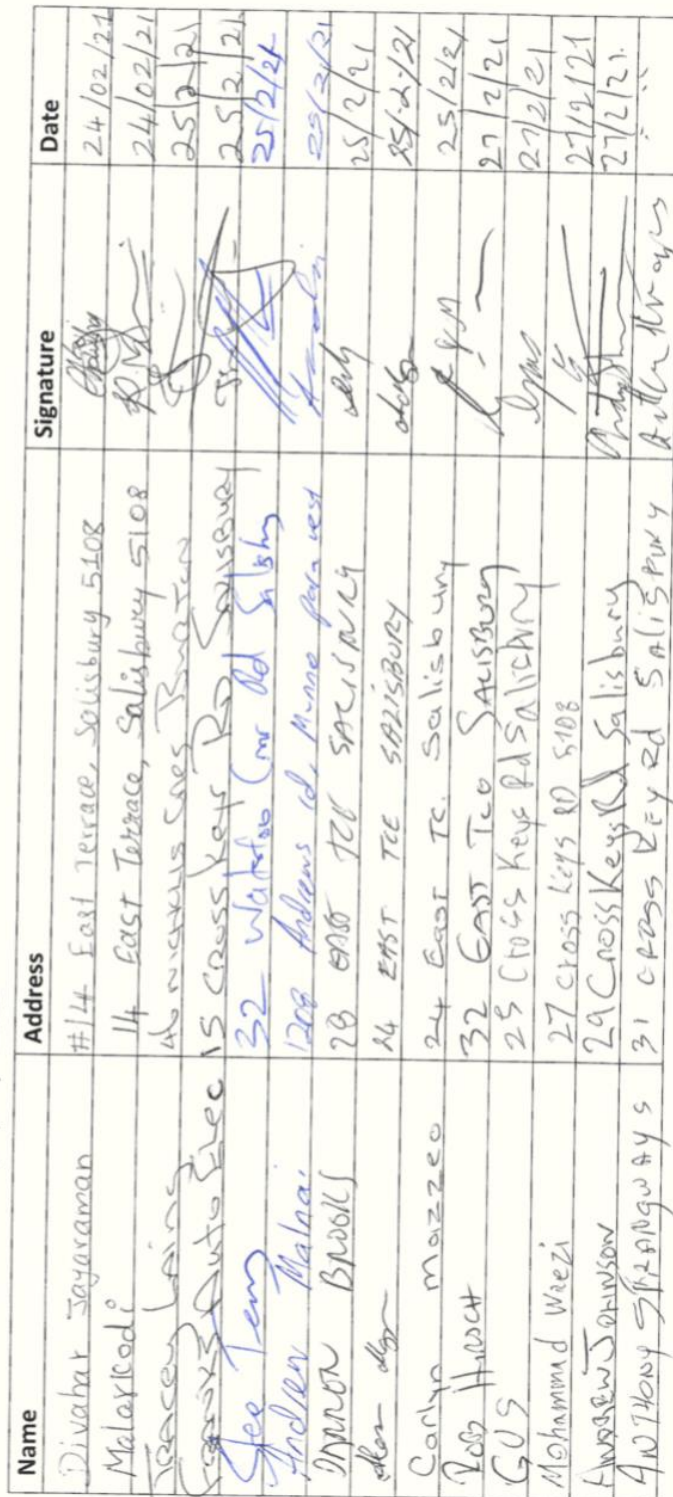 Name Address Signature Date
Divahar Jayaraman #14 East Terrace, Salisbury 5108 24/02/21
Malarkodi 14 East Terrace, Salisbury 5108 24/02/21
Tracey Laing 25/2/21
Auto Elec 15 Cross Keys RD SALISBURY 25/2/21
32 Waterloo Cnr Rd 25/2/21
Andrew 25/2/21
DARRON BROOKS 28 EAST TCE SALISBURY 25/2/21
24 EAST TCE SALISBURY 25/2/21
Carlyn Mazzeo 24 East Tc. Salisbury 25/2/21
32 EAST Tce SALISBURY 27/2/21
GUS 25 Cross Keys Rd Salisbury 27/2/21
Mohammad 27 cross keys RD 5108 27/2/21
ANDREW JOHNSON 29 Cross Keys Rd Salisbury 27/2/21.
ANTHONY STRANGWAYS 31 CROSS KEY Rd SALISBURY